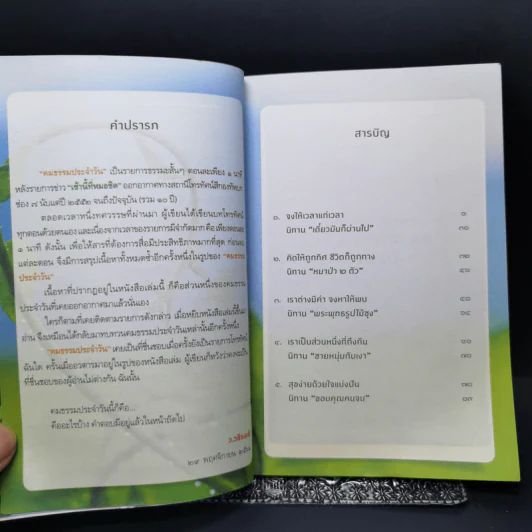 คำปรารภ
"คมธรรมประจำวัน" เป็นรายการธรรมะสั้นๆ ตอนละเพียง ๑ นาที
หลังรายการข่าว "เช้านี้ที่หมอชิต" ออกอากาศทางสถานีโทรทัศน์สีกองทัพบก
ช่อง ๗ นับแต่ปี ๒๕๕๒ จนถึงปัจจุบัน (รวม ๑๐ ปี)
ตลอดเวลาหนึ่งทศวรรษที่ผ่านมา ผู้เขียนได้เขียนบทโทรทัศน์
ทุกตอนด้วยตนเอง และเนื่องจากเวลาของรายการมีจำกัดมาก คือเพียงตอนละ
๑ นาที ดังนั้น เพื่อให้สารที่ต้องการสื่อมีประสิทธิภาพมากที่สุด ก่อนจบ
แต่ละตอน จึงมีการสรุปเนื้อหาทั้งหมดซ้ำอีกครั้งหนึ่งในรูปของ "คมธรรม
ประจำวัน"
เนื้อหาที่ปรากฏอยู่ในหนังสือเล่มนี้ ก็คือส่วนหนึ่งของคมธรรม
ประจำวันที่เคยออกอากาศมาแล้วนั่นเอง
ใครก็ตามที่เคยติดตามรายการดังกล่าว เมื่อหยิบหนังสือเล่มนี้ขึ้นมา
อ่าน จึงเหมือนได้กลับมาทบทวนคมธรรมประจำวันเหล่านั้นอีกครั้งหนึ่ง
"คมธรรมประจำวัน" เคยเป็นที่ชื่นชอบเมื่อครั้งยังเป็นรายการโทรทัศน์
ฉันใด ครั้นเมื่ออวตารมาอยู่ในรูปของหนังสือเล่ม ผู้เขียนก็หวังว่าคงจะเป็น
ที่ชื่นชอบของผู้อ่านไม่ต่างกัน ฉันนั้น
คมธรรมประจำวันนี้ก็คือ...
คืออะไรบ้าง คำตอบมีอยู่แล้วในหน้าถัดไป
ว.วชิรเมธี
๒๙ พฤศจิกายน
สารบัญ
๑. จงให้เวลาแก่เวลา ๑
นิทาน "เดี๋ยวมันก็ผ่านไป"
๒. คิดให้ถูกทิศ ชีวิตก็ถูกทาง
นิทาน "หมาป่า ๒ ตัว"
๓. เราต่างมีค่า จงหาให้พบ
นิทาน "พระพุทธรูปไม้ซุง"
๔. เราเป็นส่วนหนึ่งที่ถึงกัน
นิทาน "ชายหนุ่มกับเงา"
๕. สุขง่ายด้วยใจแบ่งปัน
นิทาน "ขอบคุณคนจน"